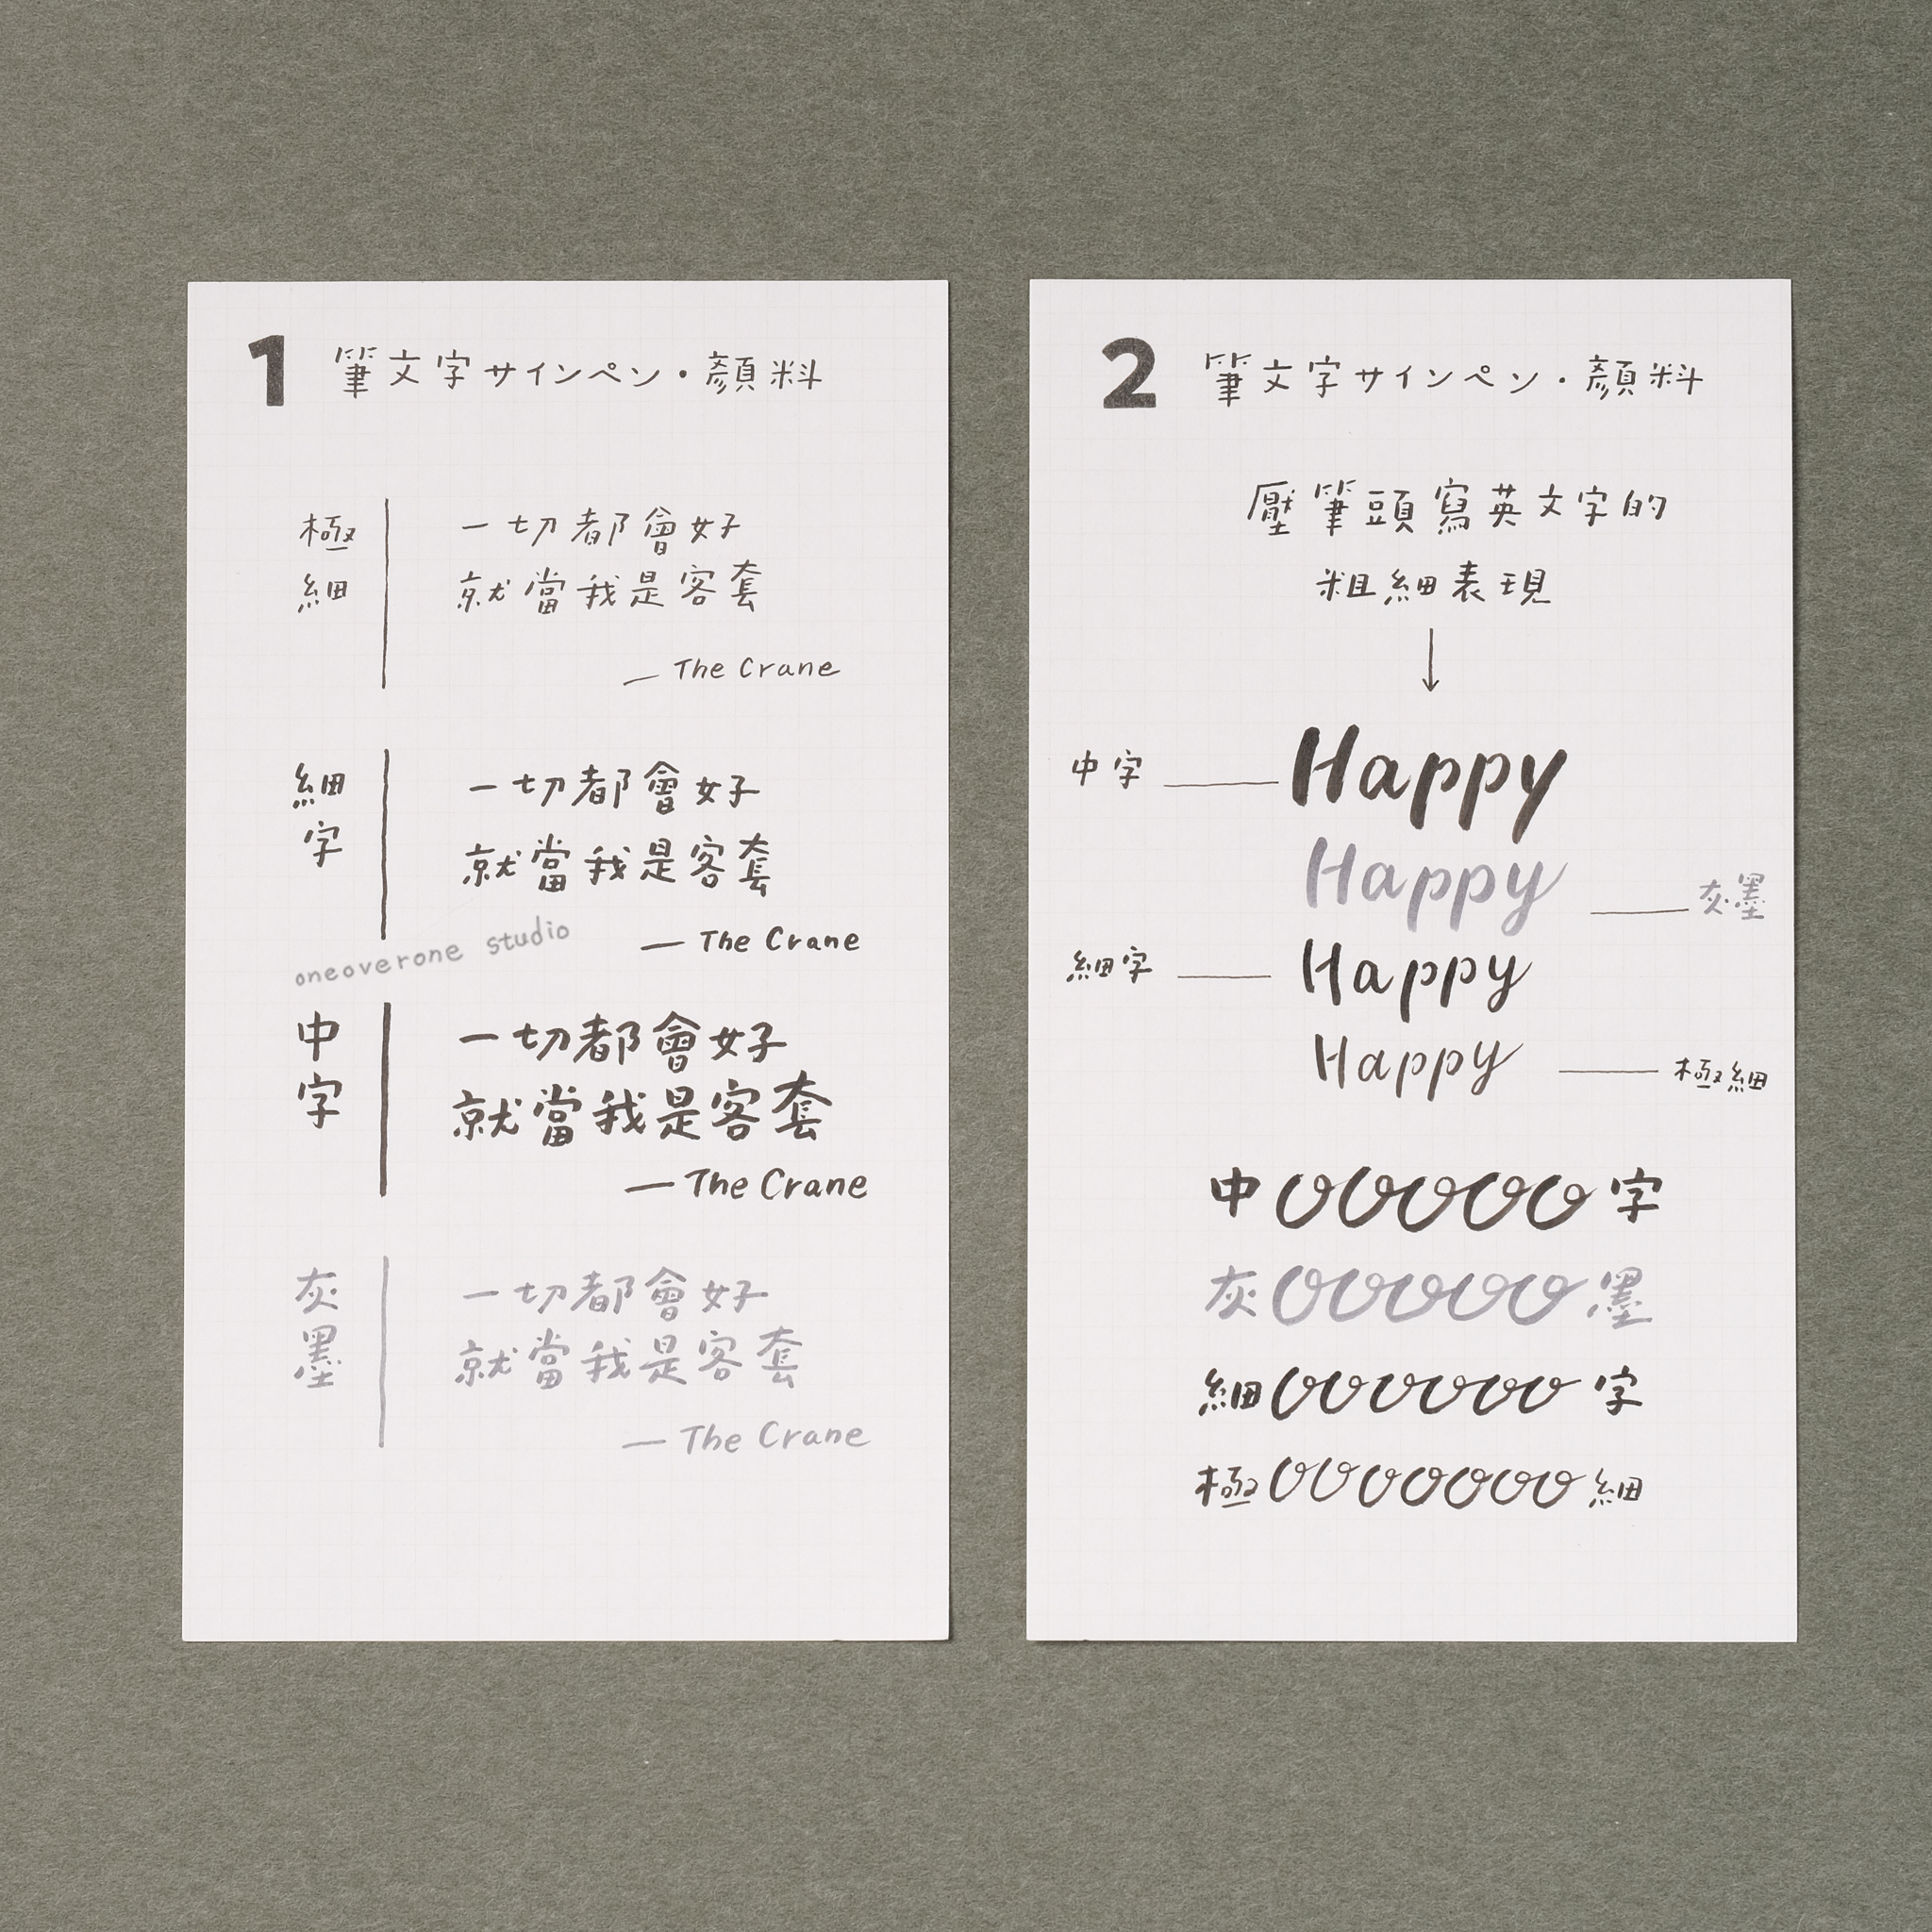 1 筆文字サインペン・顔料
極細
一切都會好
就當我是客套
— The Crane
細字
一切都會好
就當我是客套
— The Crane
oneoverone studio
中字
一切都會好
就當我是客套
— The Crane
灰墨
一切都會好
就當我是客套
— The Crane
2 筆文字サインペン・顔料
壓筆頭寫英文字的
粗細表現
↓
中字 — Happy
Happy — 灰墨
細字 — Happy
Happy — 極細
中 OOOOO 字
灰 OOOOO 墨
細 OOOOOO 字
極 OOOOOOO 細